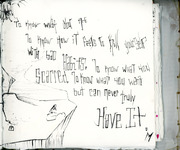 To know what its
To know how it feels to kill yourself
with bad Habits. To know what you
Scarred. To know what you want
but can never truly
Have It